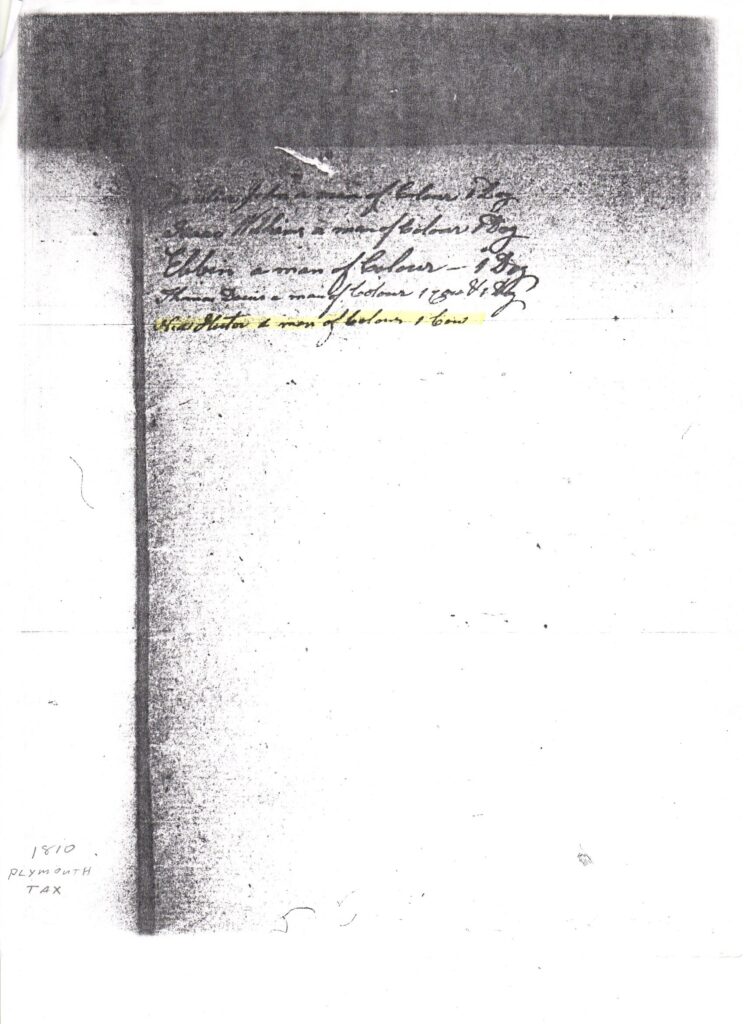 John a man of Colour 1 Dog
a man of Colour 1 Dog
Ebbin a man of Colour - 1 Dog
Thomas Davis a man of Colour 1 Cow & 1 Dog
Ned Hector a man of Colour 1 Cow
1810
PLYMOUTH
TAX